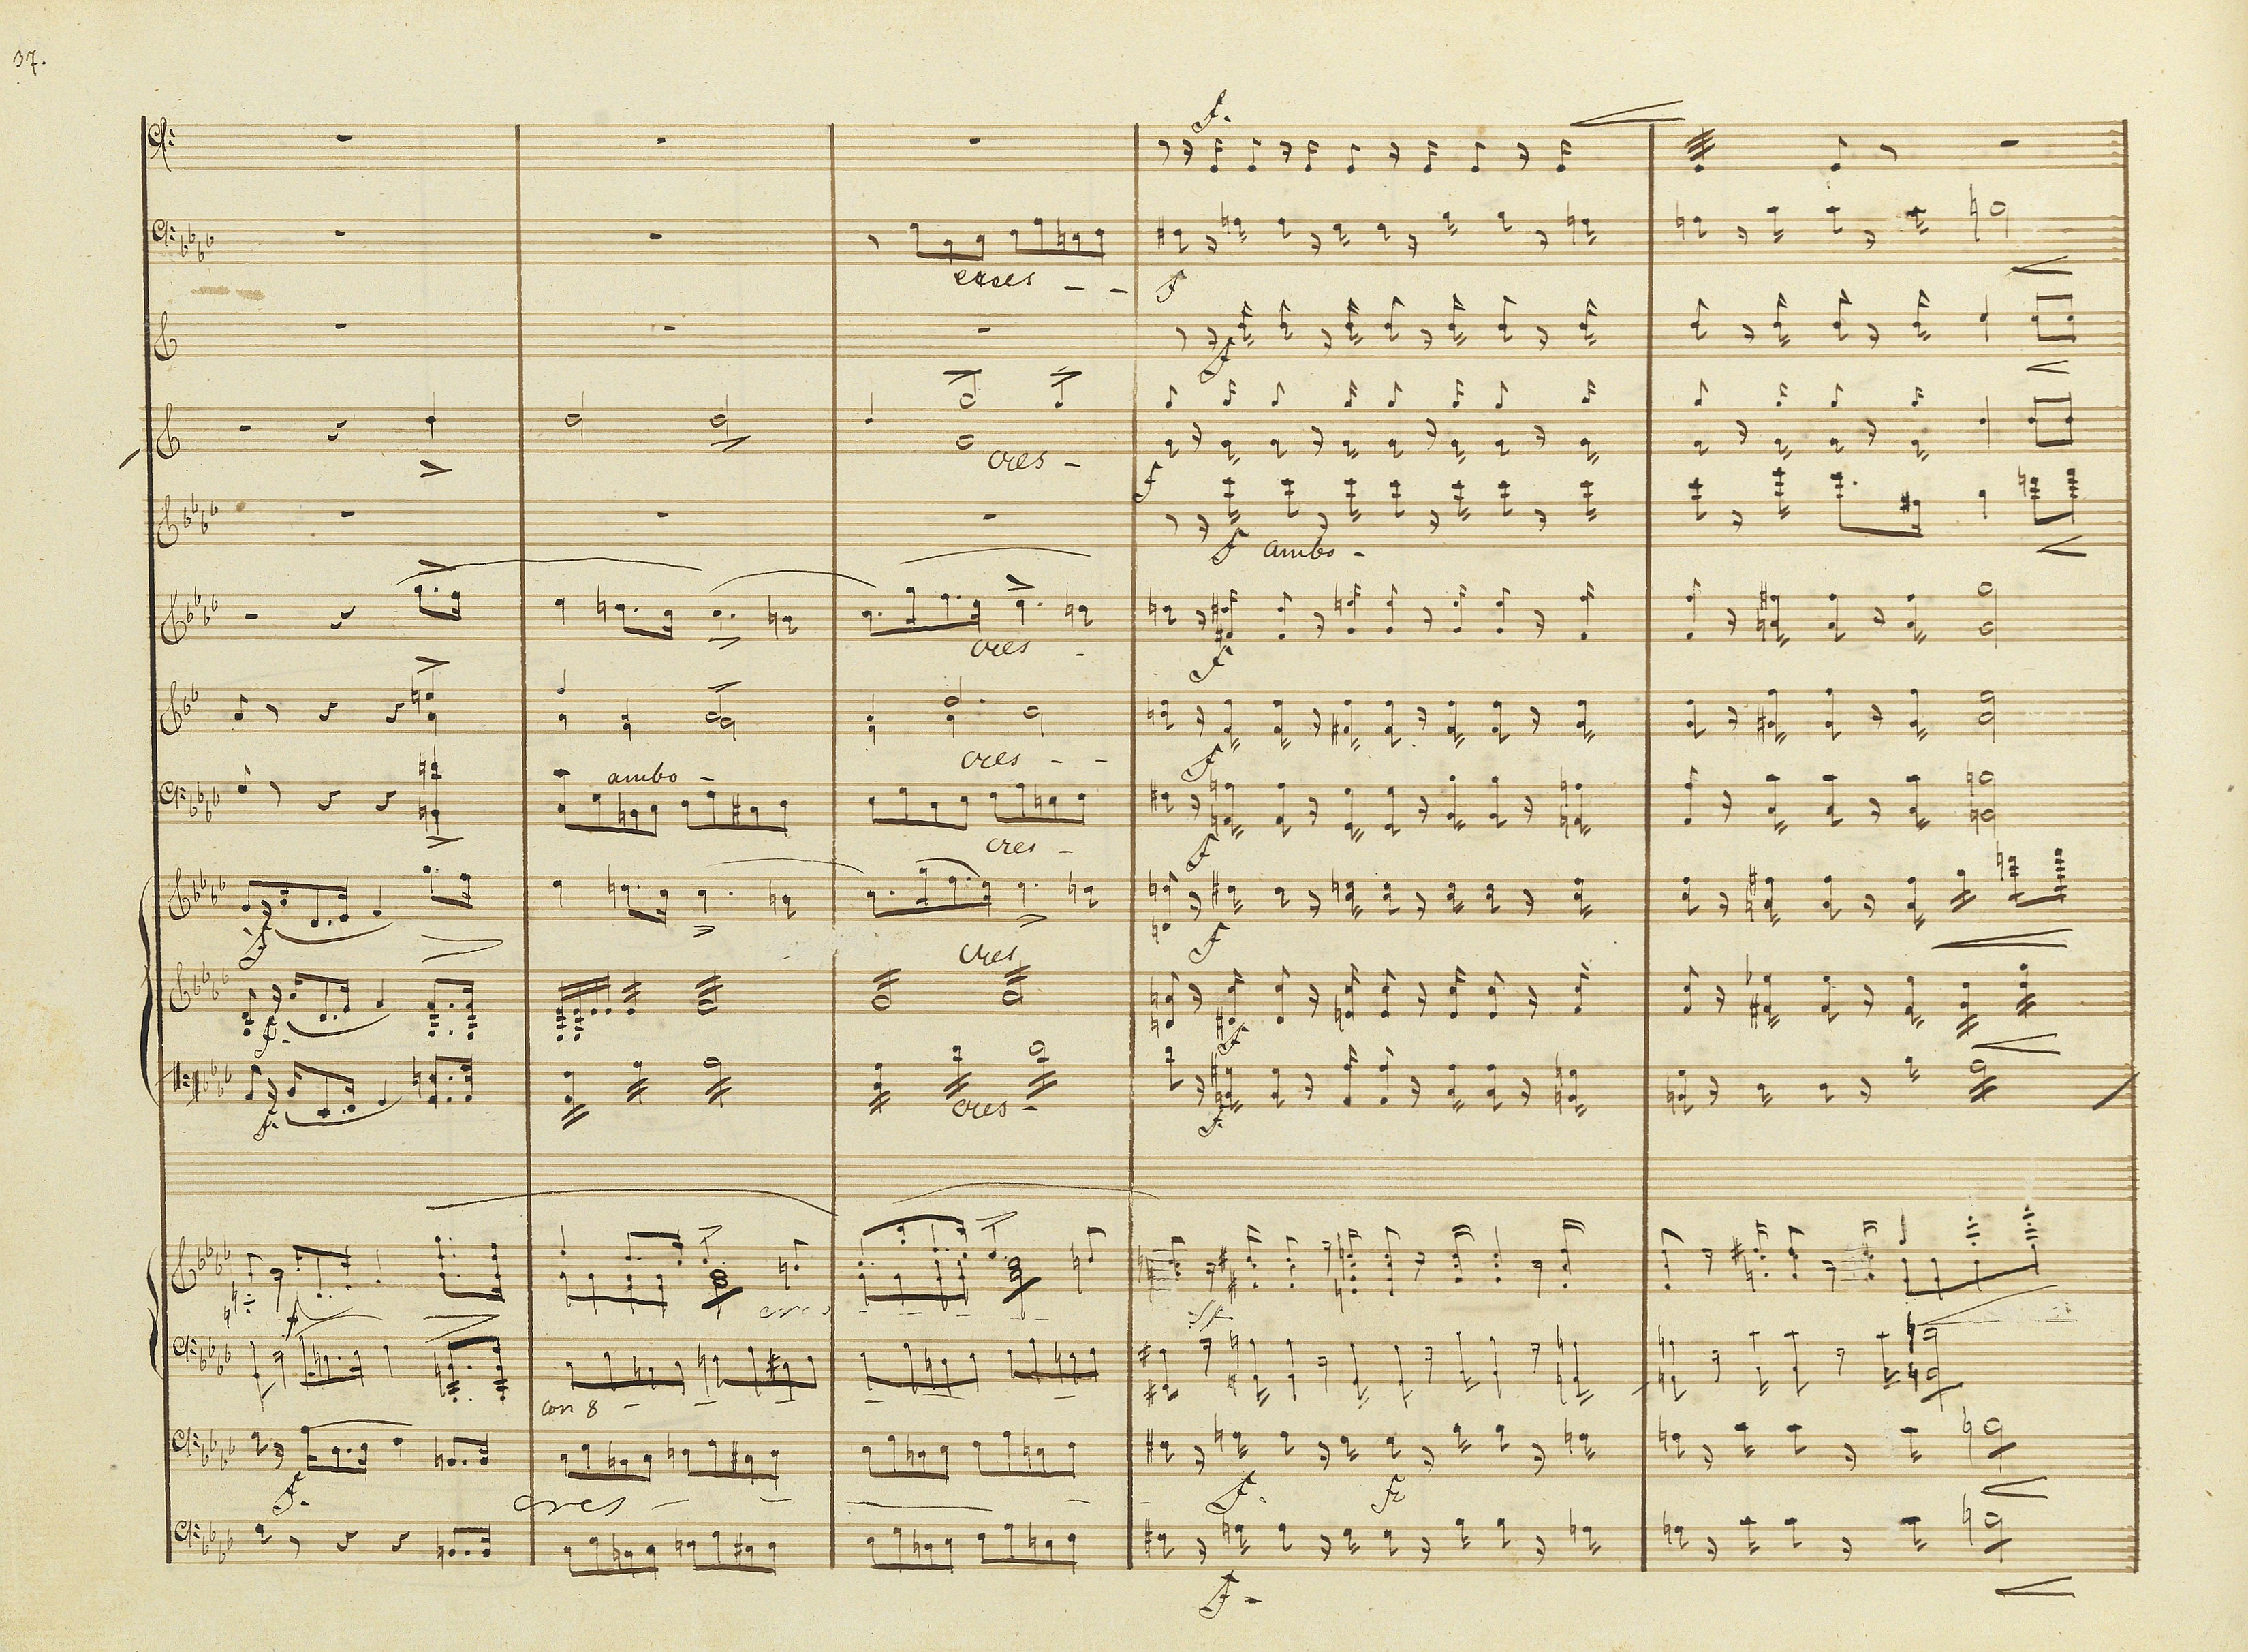 37.
f.
cres - -
f
f
cres -
f
f ambo -
cres -
f
cres - -
f
ambo -
cres -
f
f
cres
f
f.
f
f.
cres -
f.
f
cres - - - - -
sf
con 8 - - - - - -
f.
f.
fz
cres - - - -
f. -